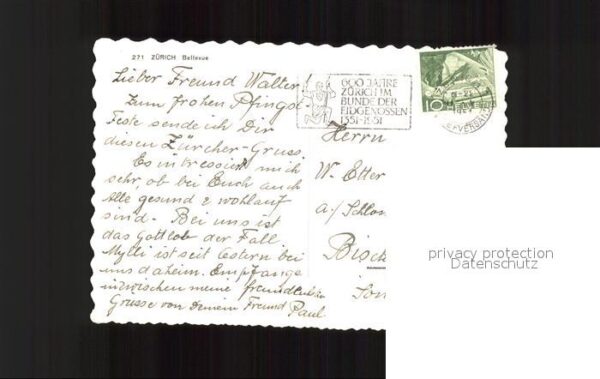 271 ZÜRICH Bellevue
Lieber Freund Walter
Zum frohen Pfingst-
Feste sende ich Dir
diesen Zürcher-Gruss.
Es intressiert mich
sehr, ob bei Euch auch
Alle gesund & wohlauf
sind. Bei uns ist
das Gottlob der Fall
ist seit Ostern bei
uns daheim. Empfange
inzwischen meine
Grüsse von Deinem Freund Paul
600 JAHRE
ZÜRICH IM
BUNDE DER
EIDGENOSSEN
1351-1951
10
Herrn
W. Etter
a/ Schlo
Bisc
privacy protection
Datenschutz